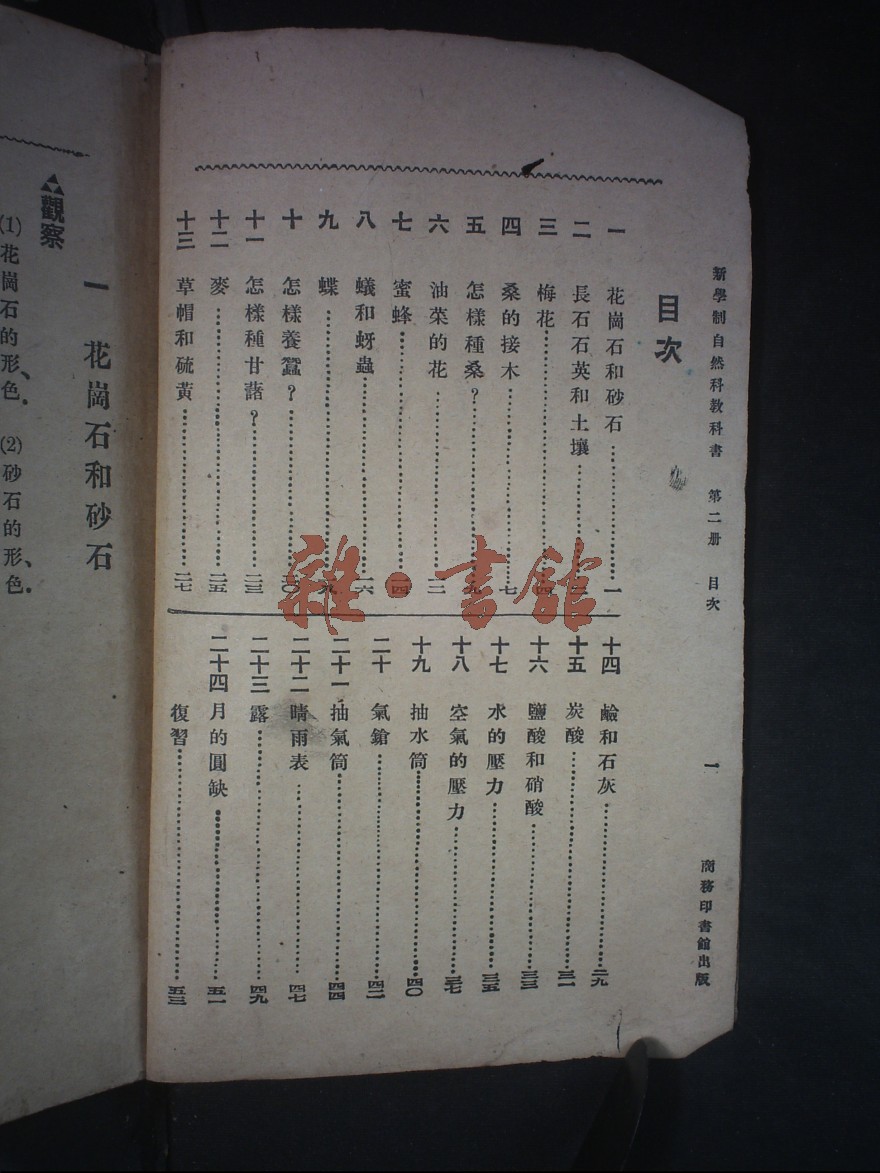 新學制自然科教科書　第二册　目次　一　商務印書館出版
目次
一　花崗石和砂石……一
二　長石石英和土壤……二
三　梅花……四
四　桑的接木……七
五　怎樣種桑？……九
六　油菜的花……一二
七　蜜蜂……一四
八　蟻和蚜蟲……一六
九　蝶……一八
十　怎樣養蠶？……二〇
十一　怎樣種甘藷？……二三
十二　麥……二五
十三　草帽和硫黃……二七
十四　鹼和石灰……二九
十五　炭酸……三一
十六　鹽酸和硝酸……三三
十七　水的壓力……三五
十八　空氣的壓力……三七
十九　抽水筒……四〇
二十　氣鎗……四二
二十一　抽氣筒……四四
二十二　晴雨表……四七
二十三　露……四九
二十四　月的圓缺……五一
復習……五三
雜·書館
一　花崗石和砂石
觀察
(1)花崗石的形、色.　(2)砂石的形、色.